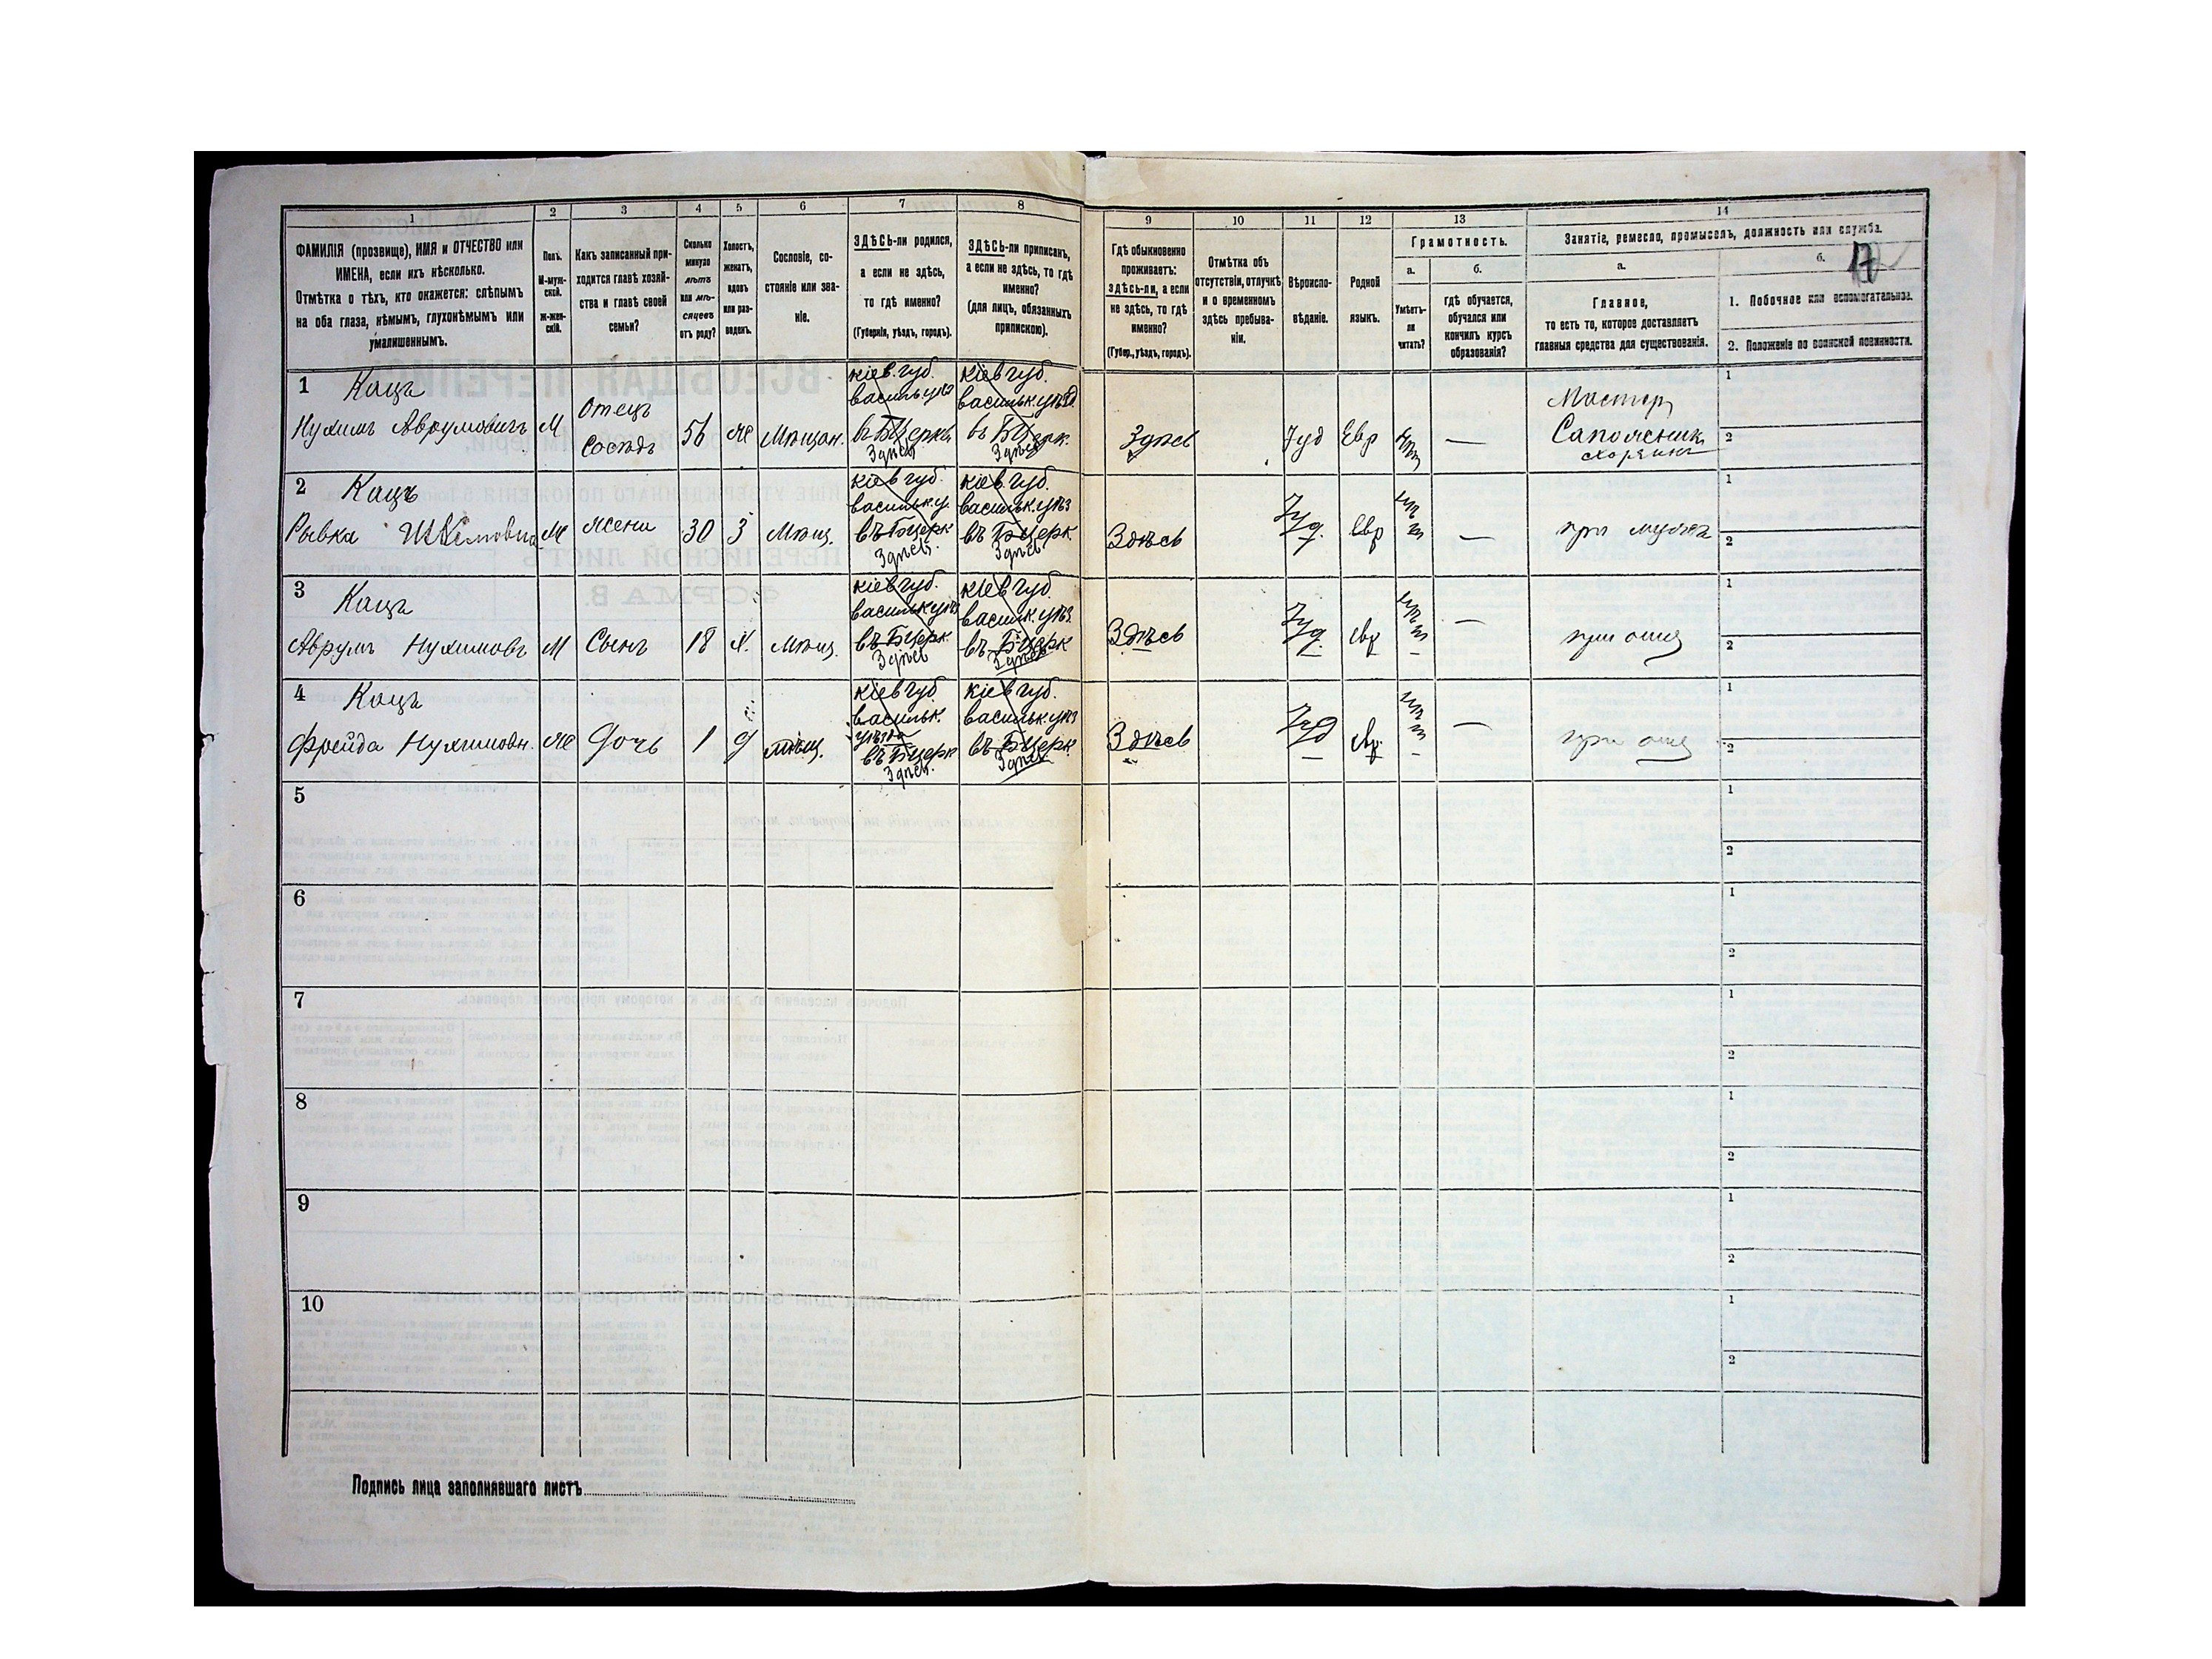 1
2
3
4
5
6
7
8
9
10
11
12
13
14
ФАМИЛІЯ (прозвище), ИМЯ и ОТЧЕСТВО или
ИМЕНА, если ихъ нѣсколько.
Отмѣтка о тѣхъ, кто окажется: слѣпымъ
на оба глаза, нѣмымъ, глухонѣмымъ или
умалишеннымъ.
Полъ.
М-муж-
ской.
ж-жен-
скій.
Какъ записанный при-
ходится главѣ хозяй-
ства и главѣ своей
семьи?
Сколько
минуло
лѣтъ
или мѣ-
сяцевъ
отъ роду?
Холостъ,
женатъ,
вдовъ
или раз-
веденъ.
Сословіе, со-
стояніе или зва-
ніе.
ЗДѢСЬ-ли родился,
а если не здѣсь,
то гдѣ именно?
(Губернія, уѣздъ, городъ).
ЗДѢСЬ-ли приписанъ,
а если не здѣсь, то гдѣ
именно?
(для лицъ, обязанныхъ
припискою).
Гдѣ обыкновенно
проживаетъ:
здѣсь-ли, а если
не здѣсь, то гдѣ
именно?
(Губер., уѣздъ, городъ).
Отмѣтка объ
отсутствіи, отлучкѣ
и о временномъ
здѣсь пребыва-
ніи.
Вѣроиспо-
вѣданіе.
Родной
языкъ.
Грамотность.
а.
Умѣетъ-
ли
читать?
б.
гдѣ обучается,
обучался или
кончилъ курсъ
образованія?
Занятіе, ремесло, промыселъ, должность или служба.
а.
Главное,
то есть то, которое доставляетъ
главныя средства для существованія.
б.
1. Побочное или вспомогательное.
2. Положеніе по воинской повинности.
1 Кацъ
Нухимъ Аврумовичъ М Отецъ Сосѣдъ 56 же Мѣщан.
кіев. губ.
кіев губ.
васильк. уѣзд
въ БЦеркв
въ БЦерк.
Здѣсь
Здѣсь
Здѣсь Іуд Евр —
Мастер
Сапожник
1
2
2 Кацъ
Рывка Ж жена 30 З Мѣщ.
кіев губ.
кіев. губ.
васильк. у.
васильк. уѣз
въ БЦерк
въ БЦерк
Здѣсь.
Здѣсь
Здѣсь Іуд. Евр —
при мужѣ
1
2
3 Кацъ
Аврумъ Нухимовъ М Сынъ 18 х. Мѣщ.
кіев губ.
кіев губ.
васильк уѣз
васильк. уѣз.
въ БЦерк.
въ БЦерк
Здѣсь
Здѣсь
Здѣсь Іуд. евр —
при отцѣ
1
2
4 Кацъ
Фрейда Нухимовн. же Дочь 1 д мѣщ.
кіев губ
кіев губ.
васильк.
васильк. уѣз
уѣзда
въ БЦерк
въ БЦерк
Здѣсь.
Здѣсь
Здѣсь Іуд евр. —
при отцѣ
1
2
5
1
2
6
1
2
7
1
2
8
1
2
9
1
2
10
1
2
Подпись лица заполнявшаго листъ